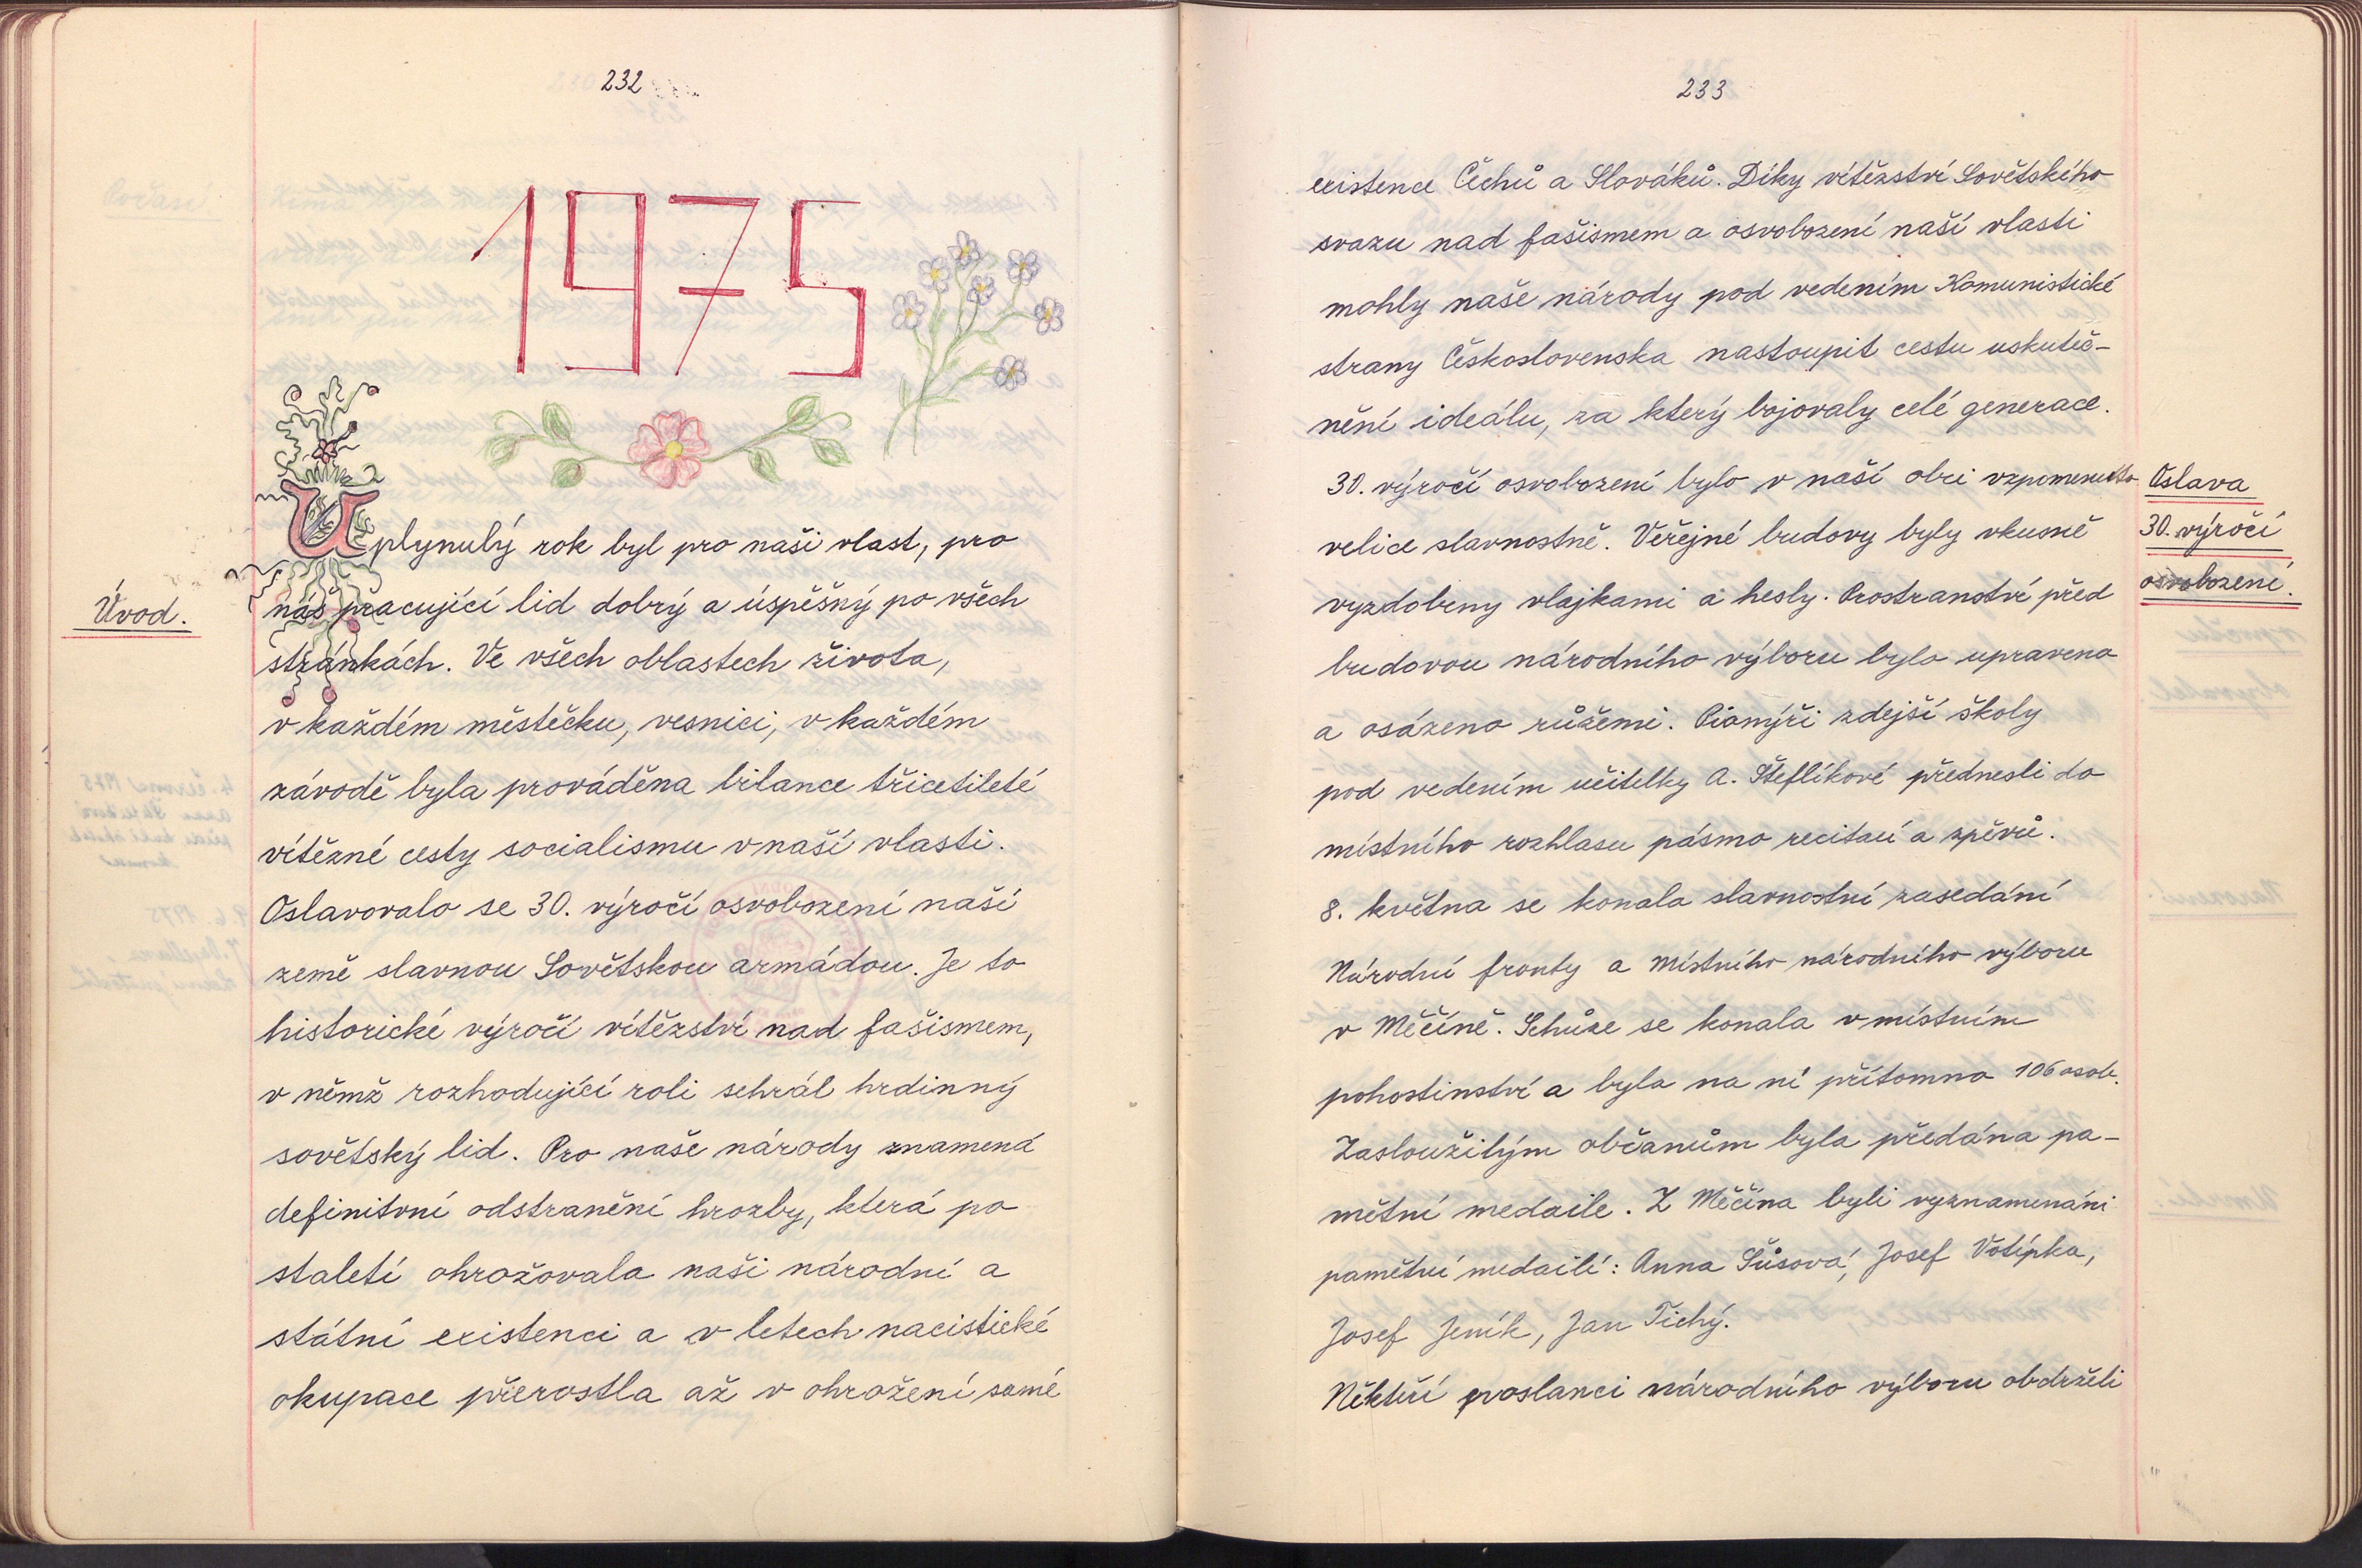 232
1975
Úvod.
Uplynulý rok byl pro naši vlast, pro
náš pracující lid dobrý a úspěšný po všech
stránkách. Ve všech oblastech života,
v každém městěčku, vesnici, v každém
závodě byla prováděna bilance třicetileté
vítězné cesty socialismu v naší vlasti.
Oslavovalo se 30. výročí osvobození naší
země slavnou Sovětskou armádou. Je to
historické výročí vítězství nad fašismem,
v němž rozhodující roli sehrál hrdinný
sovětský lid. Pro naše národy znamená
definitvní odstranění hrozby, která po
staletí ohrožovala naši národní a
státní existenci a v letech nacistické
okupace přerostla až v ohrožení samé
233
existence Čechů a Slováků. Díky vítězství Sovětského
svazu nad fašismem a osvobození naší vlasti
mohly naše národy pod vedením Komunistické
strany Československa nastoupit cestu uskuteč-
nění ideálu, za který bojovaly celé generace.
Oslava
30. výročí
osvobození.
30. výročí osvobození bylo v naší obci vzpomenuto
velice slavnostně. Veřejné budovy byly vkusně
vyzdobeny vlajkami a hesly. Prostranství před
budovou národního výboru bylo upraveno
a osázeno růžemi. Pionýři zdejší školy
pod vedením učitelky A. Šteflíkové přednesli do
místního rozhlasu pásmo recitací a zpěvů.
8. května se konala slavnostní zasedání
Národní fronty a Místního národního výboru
v Měčíně. Schůze se konala v místním
pohostinství a byla na ní přítomno 106 osob.
Zasloužilým občanům byla předána pa-
mětní medaile. Z Měčína byli vyznamenáni
pamětní medailí: Anna Šůsová, Josef Votípka,
Josef Jeník, Jan Tichý.
Někteří poslanci národního výboru obdrželi